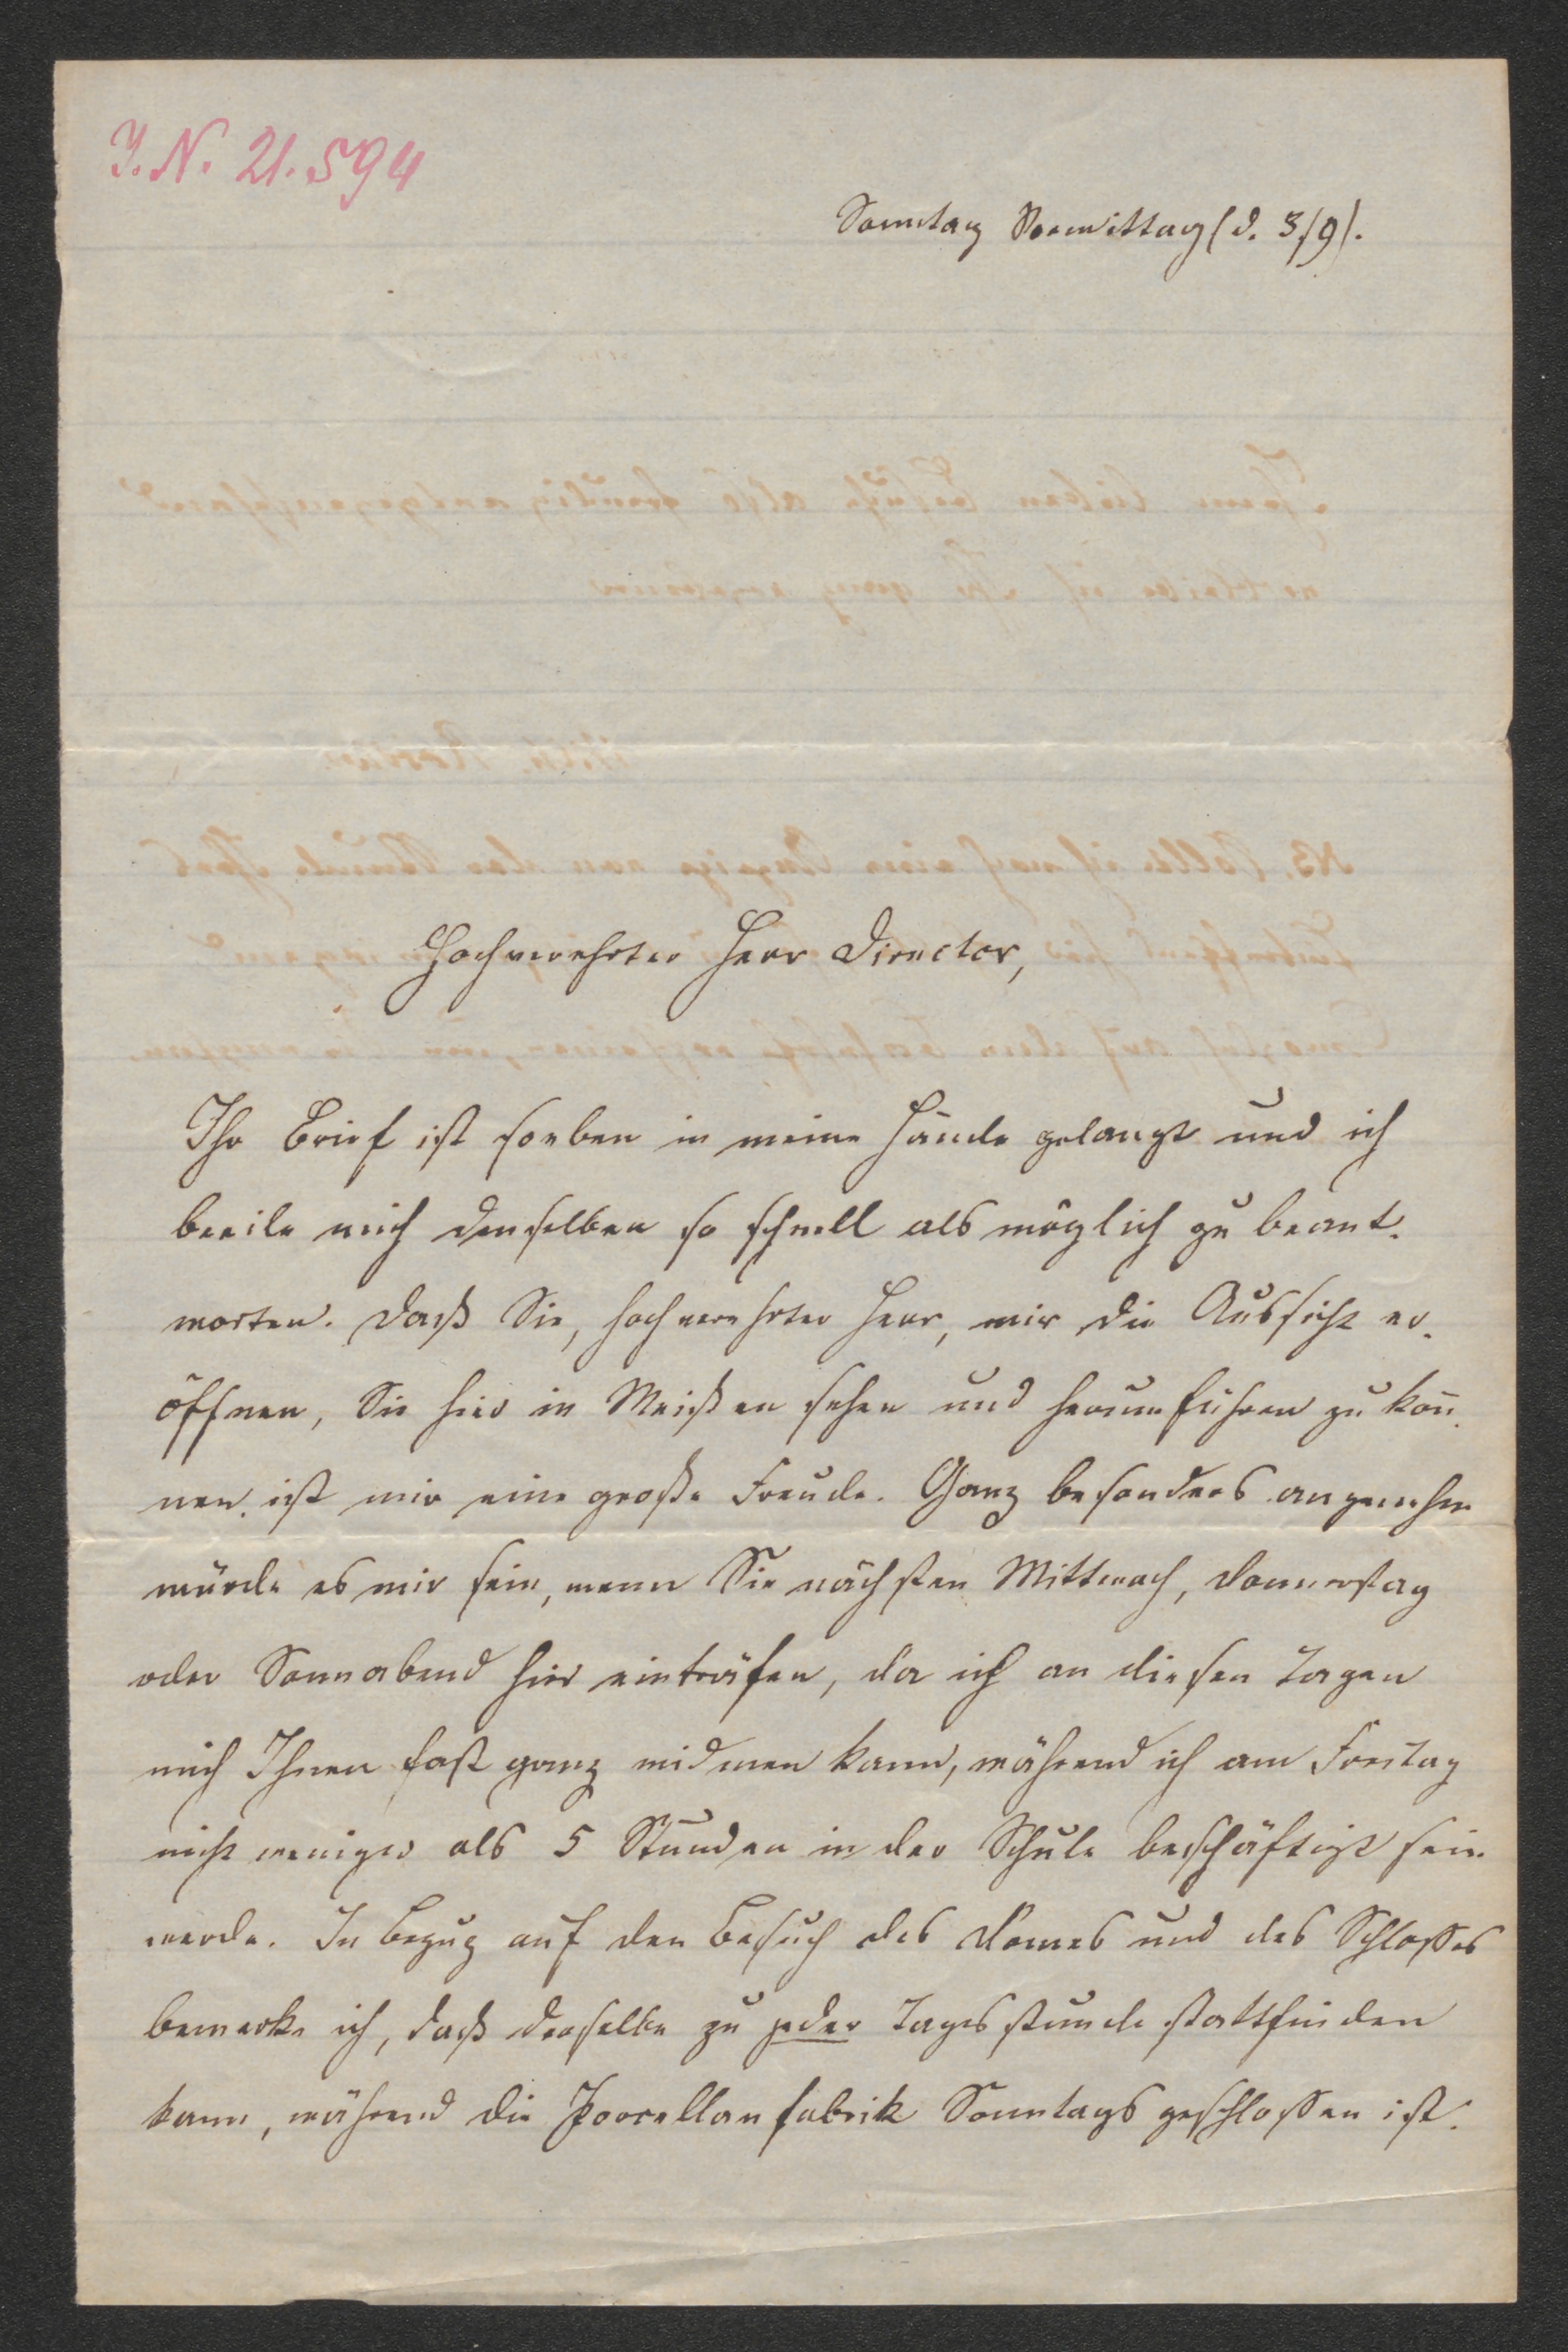 J. N. 21.594
Sonntag Vormittag (d. 3/9).
Hochverehrter Herr Director,
Ihr Brief ist soeben in meine Hände gelangt und ich
beeile mich denselben so schnell als möglich zu beant-
worten. Daß Sie, hochverehrter Herr, mir die Aussicht er-
öffnen, Sie hier in Meißen sehen und herumführen zu kön-
nen, ist mir eine große Freude. Ganz besonders angenehm
würde es mir sein, wenn Sie nächsten Mittwoch, Donnerstag
oder Sonnabend hier einträfen, da ich an diesen Tagen
mich Ihnen fast ganz widmen kann, während ich am Freitag
nicht weniger als 5 Stunden in der Schule beschäftigt sein
werde. In Bezug auf den Besuch des Domes und des Schlosses
bemerke ich, daß derselbe zu jeder Tagesstunde stattfinden
kann, während die Porcellanfabrik Sonntags geschlossen ist.